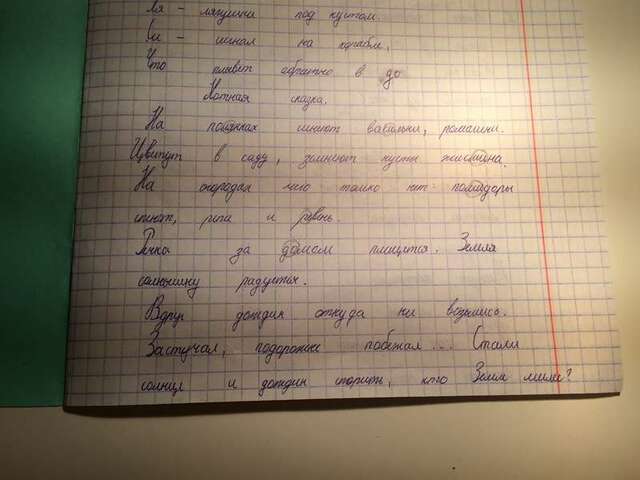 Ля - лягушка под кустом.
Си - сигнал на корабле,
Что плывёт обратно в до
Нотная сказка.
На полянках синеют васильки, ромашки.
Цветут в саду, зеленеют кусты жасмина.
На огородах чего только нет- помидоры
шпинат, репа и ревень.
Речка за домом плещется. Земля
солнышку радуется.
Вдруг дождик откуда ни возьмись.
Застучал, подорожке побежал... Стали
солнце и дождик спорить, кто Земле милее?